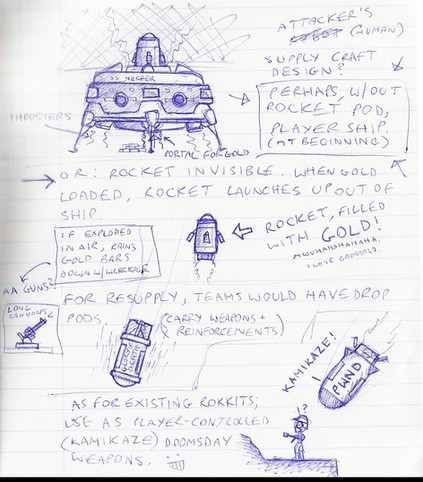 ATTACKER'S
(HUMAN)
SUPPLY CRAFT
DESIGN?
PERHAPS, W/OUT
ROCKET POD,
PLAYER SHIP.
(AT BEGINNING)
THRUSTERS
PORTAL FOR GOLD
OR: ROCKET INVISIBLE. WHEN GOLD
LOADED, ROCKET LAUNCHES UP OUT OF
SHIP.
IF EXPLODED
IN AIR, RAINS
GOLD BARS
DOWN W/WRECKAGE
ROCKET, FILLED
WITH GOLD!
MWUHAHAHAHAHA.
I LOVE GOOOOOLD.
AA GUNS?
LONG
CANNONS?
FOR RESUPPLY, TEAMS WOULD HAVE DROP
PODS.
(CARRY WEAPONS +
REINFORCEMENTS)
KAMIKAZE!
PWND
!?
AS FOR EXISTING ROKKITS,
USE AS PLAYER-CONTROLLED
(KAMIKAZE) DOOMSDAY
WEAPONS.